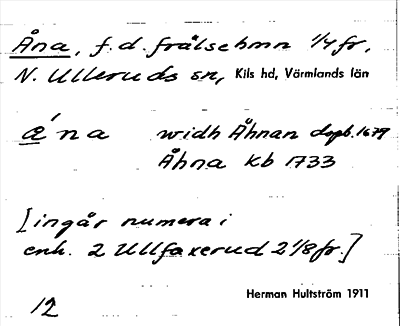 Åna, f.d. frälsehmn 1/4 fr,
N. Ulleruds sn, Kils hd, Värmlands län
æ´na widh Åhnan dopb. 1679
Åhna Kb 1733
[ingår numera i
enh. 2 Ullfaxerud 2 1/8 fr.]
Herman Hultström 1911
12